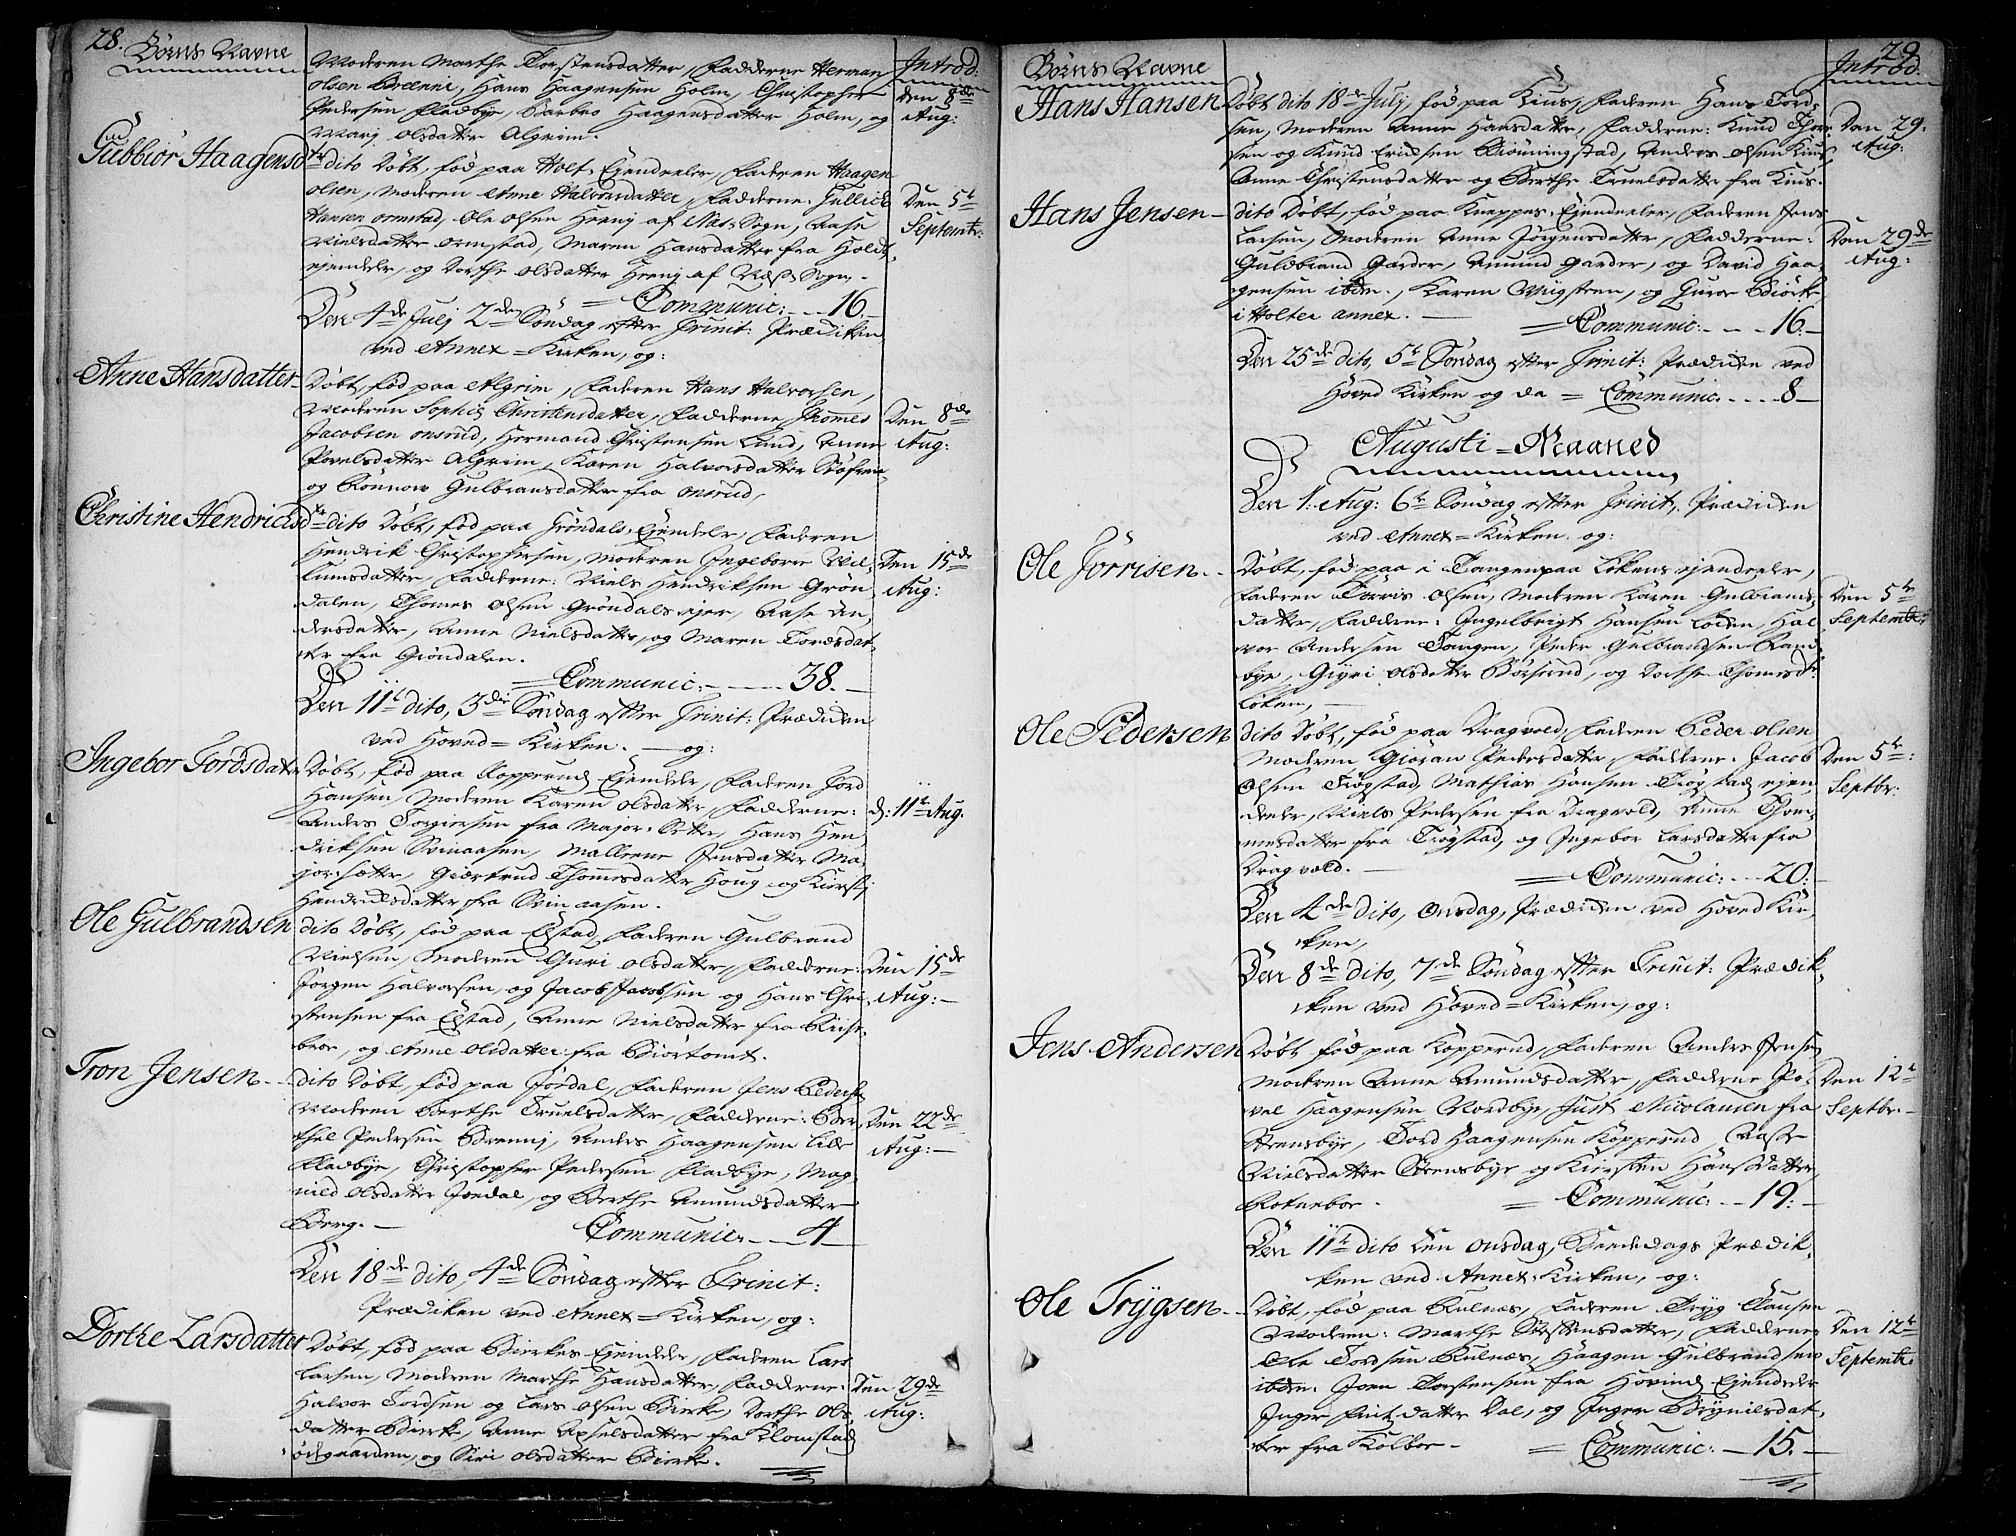 28. Börns Navne
Introd:
Moderen Marthe Torstensdatter, Fadderne Herman
Olsen Brenni, Hans Haagensen Holm, Christopher
Pedersen Fladbye, Barbro Haagensdatter Holm, og
Marj Olsdatter Algrim.
Den 8de
Aug:
Gubbiör Haagensd
tr dito Döbt, fød paa Holt-Ejendeeler, Faderen Haagen
Olsen, Moderen Anne Halvorsdatter, Fadderne: Gullick
Hansen Ormstad, Ole Olsen Hernj af Næs-Sogn, Aase
Nielsdatter Ormstad, Maren Hansdatter fra Holt-
ejendeler, og Dorthe Olsdatter Hernj af Næss-Sogn.
Den 5te
Septembr:
= Communic: - - 16.
Den 4de Julj 2den Söndag efter Trinit: Prædiken
ved Annex=Kirken, og:
Anne Hansdatter
Döbt, fød paa Algrim, Faderen Hans Halvorsen,
Moderen Sophie Christensdatter, Fadderne Thomes
Jacobsen Onsrud, Hermand Christensen Lund, Anne
Povelsdatter Algrim, Karen Halvorsdatter
og Rönnow Gulbransdatter fra Onsrud,
Den 8de
Aug:
Christine Hendricksd
tr dito Döbt, fød paa Gröndals-Ejendeler, Faderen
Hendrik Christophersen, Moderen Ingeborr Vil-
lumsdatter, Fadderne: Niels Hendriksen Grön-
dalen, Thomes Olsen Gröndals ejer, Aase An-
dersdatter, Anne Nielsdatter, og Maren Tordsdat-
ter fra Gröndalen.
Den 15de
Aug:
= Communic: - - 38.
Den 11te dito, 3die Söndag efter Trinit: Prædiken
ved Hoved=Kirken. - og:
Ingebor Tordsdatr
Döbt, fød paa Kopperud Ejendele, Faderen Tord
Hansen, Moderen Karen Olsdatter, Fadderne:
Anders Torgiersen fra Major-Sætter, Hans Hen-
driksen Svinaasen, Mallene Jensdatter Ma-
jor-sætter, Giertrud Thomesdatter Houg og Kirstj
Hendriksdatter fra Svinaasen.
d: 11te Aug.
Ole Gulbrandsen
dito Döbt, fød paa Elstad, Faderen Gulbrand
Nielsen, Moderen Guri Olsdatter, Fadderne:
Jörgen Halvorsen, og Jacob Jacobsen og Hans Chri-
stensen fra Elstad, Anne Nielsdatter fra
og Anne Olsdatter fra
Den 15de
Aug:
Tron Jensen
dito Döbt, fød paa Jordal, Faderen Jens Peders:
Moderen Berthe Truelsdatter, Fadderne: Ber-
thel Pedersen Brennj, Anders Haagensen Lille
Fladbye, Christopher Pedersen Fladbye, Mag-
nild Olsdatter Jordal, og Berthe Amundsdatter
Berg.
Den 22de
Aug:
Communic: - - 4
Den 18de dito, 4de Söndag efter Trinit:
Prædiken ved Annex=Kirken, og:
Dorthe Larsdatter
Döbt, fød paa Bierkes Ejendele, Faderen Lars
Larsen, Moderen Marthe Hansdatter, Fadderne:
Halvor Tordsen og Lars Olsen Bierke, Dorthe Ols-
datter Bierke, Anne Axselsdatter fra Klomstad
ödegaarden, og Siri Olsdatter Bierke.
Den 29de
Aug:
29
Börns Navne
Introd:
Hans Hansen
Döbt dito 18de Julj, fød paa Kius, Faderen Hans Tord-
sen, Moderen Anne Hansdatter, Fadderne: Knud Thor-
sen og Knud Ericksen Brönningstad, Anders Olsen Kius,
Anne Christensdatter og Berthe Truelsdatter fra Kius.
Den 29.
Aug:
Hans Jensen
dito Döbt, fød paa Kneppes-Ejendeeler, Faderen Jens
Larsen, Moderen Anne Jörgensdatter, Fadderne:
Guldbrand Garder, Amund Garder, og David Haa-
gensen ibdm., Karen Myhstren, og Guroe Biörke
i Holter annex.
Den 29de
Aug:
= Communic: - - 16.
Den 25de dito, 5te Söndag efter Trinit: Prædiken ved
Hoved Kirken og da = Communic. - - 8
Augusti=Maaned
Den 1. Aug: 6te Söndag efter Trinit, Prædiken
ved Annex=Kirken. og:
Ole Torrisen
Döbt, fød paa i Tangen paa Lökens ejendeeler,
Faderen Torris Olsen, Moderen Karen Gulbrands-
datter, Fadderne: Ingelbrigt Hansen Löken, Hal-
vor Andersen Tangen, Peder Gulbrandsen Rand-
bye, Giyri Olsdatter Börsrud, og Dorthe Thomesdr
Löken,
Den 5te
Septembr:
Ole Pedersen
dito Döbt, fød paa Dragvold, Faderen Peder Olsen
Moderen Giöran Pedersdatter, Fadderne: Jacob
Olsen Trögstad, Mathias Hansen Trögstad ejen-
deeler, Niels Pedersen fra Dragvold, Anne Thom-
mesdatter fra Trögstad, og Ingebor Larsdatter fra
Dragvold.
Den 5te:
Septbr:
= Communic: - - 20.
Den 4de dito, Onsdag, Prædiken ved Hoved Kir-
ken,
Den 8de dito, 7de Söndag efter Trinit: Prædik-
ken ved Hoved=Kirken, og:
Jens Andersen
Döbt fød paa Kopperud, Faderen Anders Jensen
Moderen Anne Amundsdatter, Fadderne Po-
vel Haagensen Nordbye, Just Nicolausen fra
Arensbye, Tord Haagensen Kopperud, Aase
Nielsdatter Arensbye og Kiersten Hansdatter
Rotneboe.
Den 12te
Septbr.
= Communic: - - 19:
Den 11te dito den Onsdag, Beededags Prædik-
ken ved Annex-Kirken, og:
Ole Trÿgsen
Döbt, fød paa Kulnæs, Faderen Tryg Clausen
Moderen: Marthe Torstensdatter, Fadderne:
Ole Tordsen Kulnæs, Haagen Gulbrandsen
ibdm. Joen Torstensen fra Hovind Ejendeele
Inger datter Dal, og Inger Brynilsdat-
ter fra Kolboe.
Den 12te
Septembr:
= Communic: - 15.